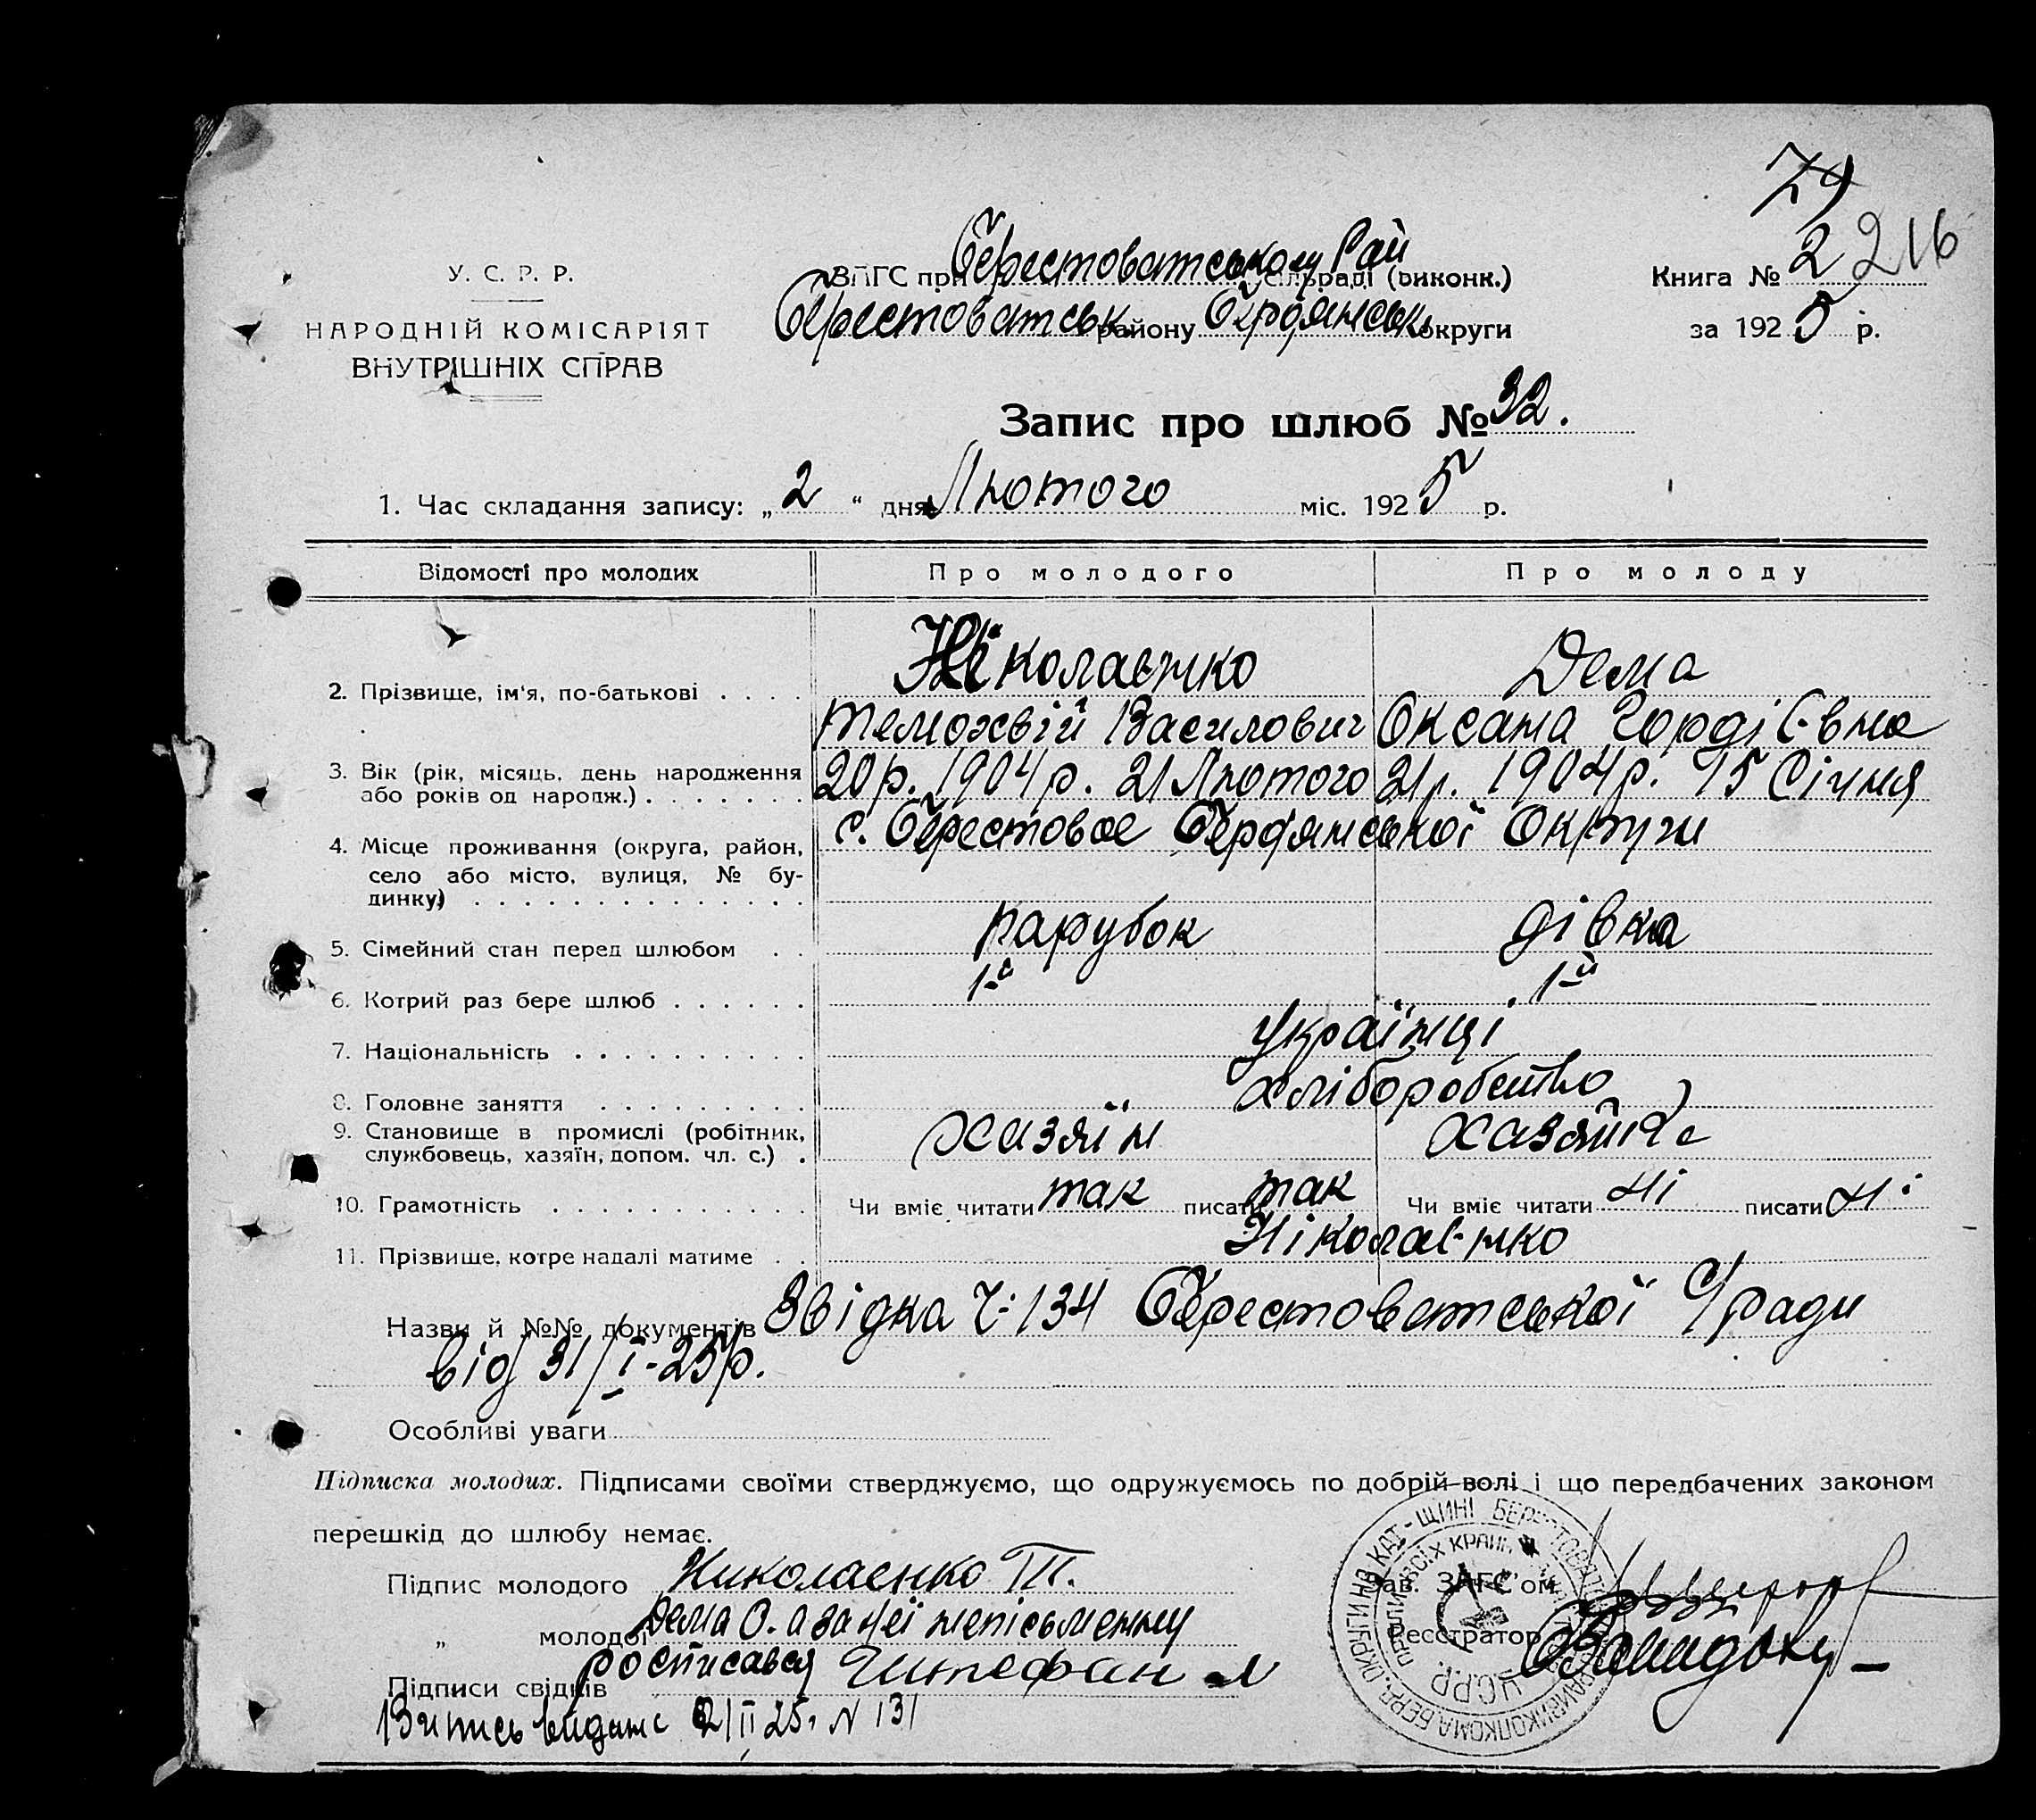 79
Берестоватському Рай
У. С. Р. Р. ВПГС при сільраді (виконк.) Книга № 2 216
Берестоватськ району Бердянськ округи за 1925 р.
НАРОДНІЙ КОМІСАРІЯТ
ВНУТРІШНІХ СПРАВ
Запис про шлюб № 32.
1. Час складання запису: „ 2 “ дня Лютого міс. 1925 р.
Відомості про молодих Про молодого Про молоду
Ніколаєнко Дема
2. Прізвище, ім'я, по-батькові . . . .
Темохвій Василович Оксана Гордієвна
3. Вік (рік, місяць, день народження 20 р. 1904 р. 21 Лютого 21 р. 1904 р. 15 Січня
або років од народж.) . . . . . . .
с. Берестовое Бердянської Округи
4. Місце проживання (округа, район,
село або місто, вулиця, № бу-
динку) . . . . . . . . . . . . . .
5. Сімейний стан перед шлюбом . . парубок дівка
6. Котрий раз бере шлюб . . . . . . 1-й 1-й
7. Національність . . . . . . . . . . українці
8. Головне заняття . . . . . . . . . хліборобство
9. Становище в промислі (робітник, хазяїн хазяйка
службовець, хазяїн, допом. чл. с.) .
10. Грамотність . . . . . . . . . . . Чи вміє читати так писати так Чи вміє читати ні писати ні
11. Прізвище, котре надалі матиме . . Ніколаєнко
Назви й №№ документів Звідка Ч: 134 Берестоватської С/ради
від 31/I-25 р.
Особливі уваги
Підписка молодих. Підписами своїми стверджуємо, що одружуємось по добрій волі і що передбачених законом
перешкід до шлюбу немає.
Підпис молодого Николаенко Т. Зав. ЗАГС'ом
„ молодої Дема О. а за неї непісьменну Реєстратор
росписався Штефан
Підписи свідків
Витись видана 2/II 25 г N 131